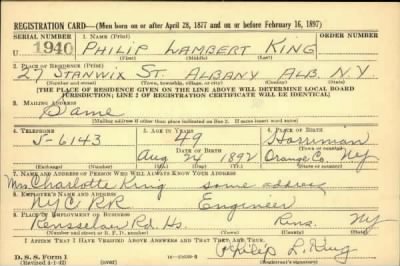 REGISTRATION CARD—(Men born on or after April 28, 1877 and on or before February 16, 1897)
SERIAL NUMBER 1. NAME (Print) ORDER NUMBER
U 1940 PHILIP LAMBERT KING
(First) (Middle) (Last)
2. PLACE OF RESIDENCE (Print)
27 STANWIX ST. ALBANY ALB. N.Y.
(Number and street) (Town, township, village, or city) (County) (State)
[THE PLACE OF RESIDENCE GIVEN ON THE LINE ABOVE WILL DETERMINE LOCAL BOARD
JURISDICTION; LINE 2 OF REGISTRATION CERTIFICATE WILL BE IDENTICAL]
3. MAILING ADDRESS
Same
[Mailing address if other than place indicated on line 2. If same insert word same]
4. TELEPHONE 5. AGE IN YEARS 6. PLACE OF BIRTH
5-6143 49 Harriman
DATE OF BIRTH (Town or county)
Aug 24 1892 Orange Co. NY
(Exchange) (Number) (Mo.) (Day) (Yr.) (State or country)
7. NAME AND ADDRESS OF PERSON WHO WILL ALWAYS KNOW YOUR ADDRESS
Mrs Charlotte King same address
8. EMPLOYER'S NAME AND ADDRESS
NYC RR Engineer
9. PLACE OF EMPLOYMENT OR BUSINESS
Rensselaer Rd. Hs. Rens. NY
(Number and street or R. F. D. number) (Town) (County) (State)
I AFFIRM THAT I HAVE VERIFIED ABOVE ANSWERS AND THAT THEY ARE TRUE.
D. S. S. Form 1 Philip L. King
(Revised 4-1-42) (over)